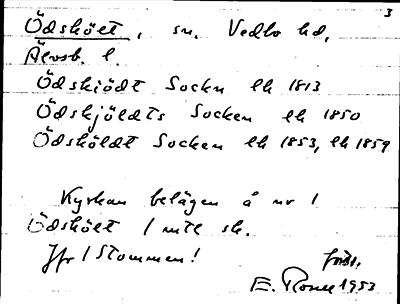 3
Ödsköet, sn. Vedbo hd,
Älvsb. l.
Ödskiödt Socken Ek 1813
Ödskjöldts Socken Ek 1850
Ödsköldt Socken Ek 1853, Ek 1859
Kyrkan belägen å nr 1
Ödsköet 1 mtl sk.
Jfr 1 Stommen!
förs.
E. 1953